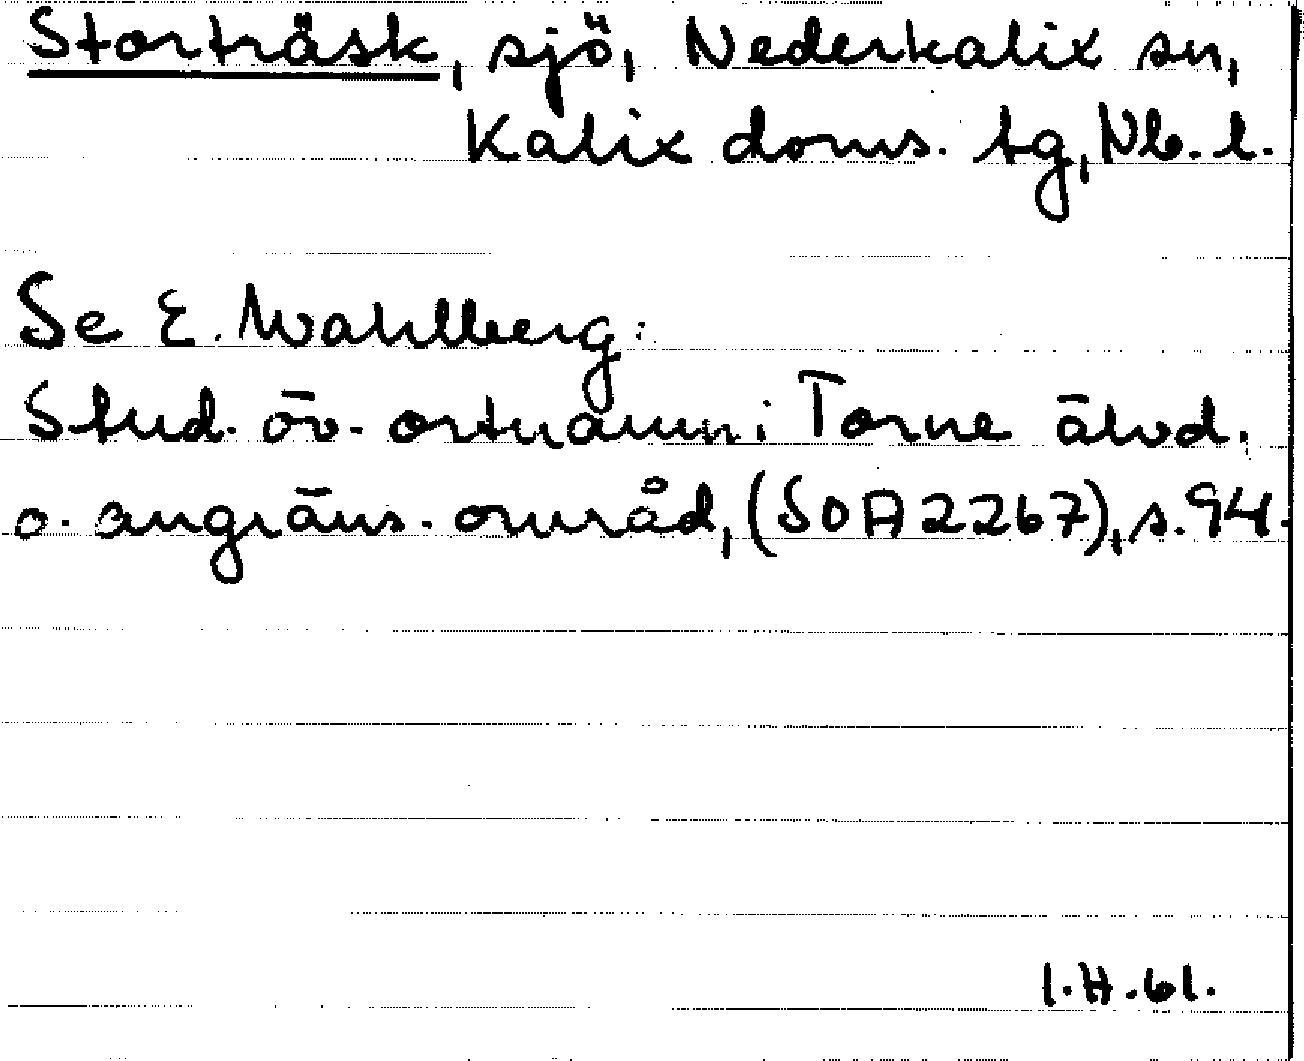 Storträsk, sjö, Nederkalix sn,
Kalix doms. tg, Nb. l.
Se E. Wahlberg:
Stud. öv. ortnamn i Torne älvd.
o. angräns. områd, (SOA 2267), s. 94.
I.H.61.